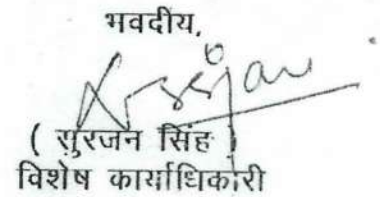 भवदीय,
( सुरजन सिंह )
विशेष कार्याधिकारी